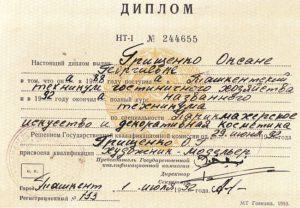 ДИПЛОМ
НТ-I № 244655
Настоящий диплом выдан Грищенко Оксане
в том, что она в 1988 поступила в Ташкентский
техникум гостиничного хозяйства
и в 1992 окончила полный курс названного
техникума
по специальности Парикмахерское
искусство и декоративная косметика
Решением Государственной квалификационной комиссии от 29 июня 92
присвоена квалификация Грищенко О.Г
Художник-модельер
Председатель Государственной
квалификационной комиссии
Ташкент 1 июля 92
Регистрационный № 193
МТ Гознака. 1993.